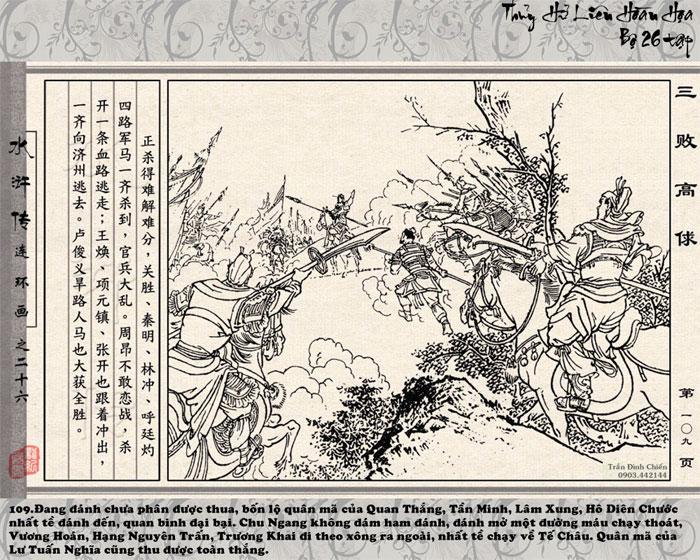 Thủy Hử Liên Hoàn Họa
Bộ 26 tập
三败高俅
正杀得难解难分，关胜、秦明、林冲、呼廷灼
四路军马一齐杀到，官兵大乱。周昂不敢恋战，杀
开一条血路逃走；王焕、项元镇、张开也跟着冲出，
一齐向济州逃去。卢俊义旱路人马也大获全胜。
水浒传连环画之二十六
第一〇九页
Trần Đình Chiến
0903.442144
109.Đang đánh chưa phân được thua, bốn lộ quân mã của Quan Thắng, Tần Minh, Lâm Xung, Hô Diên Chước
nhất tề đánh đến, quan binh đại bại. Chu Ngang không dám ham đánh, đánh mở một đường máu chạy thoát,
Vương Hoán, Hạng Nguyên Trấn, Trương Khai đi theo xông ra ngoài, nhất tề chạy về Tế Châu. Quân mã của
Lư Tuấn Nghĩa cũng thu được toàn thắng.